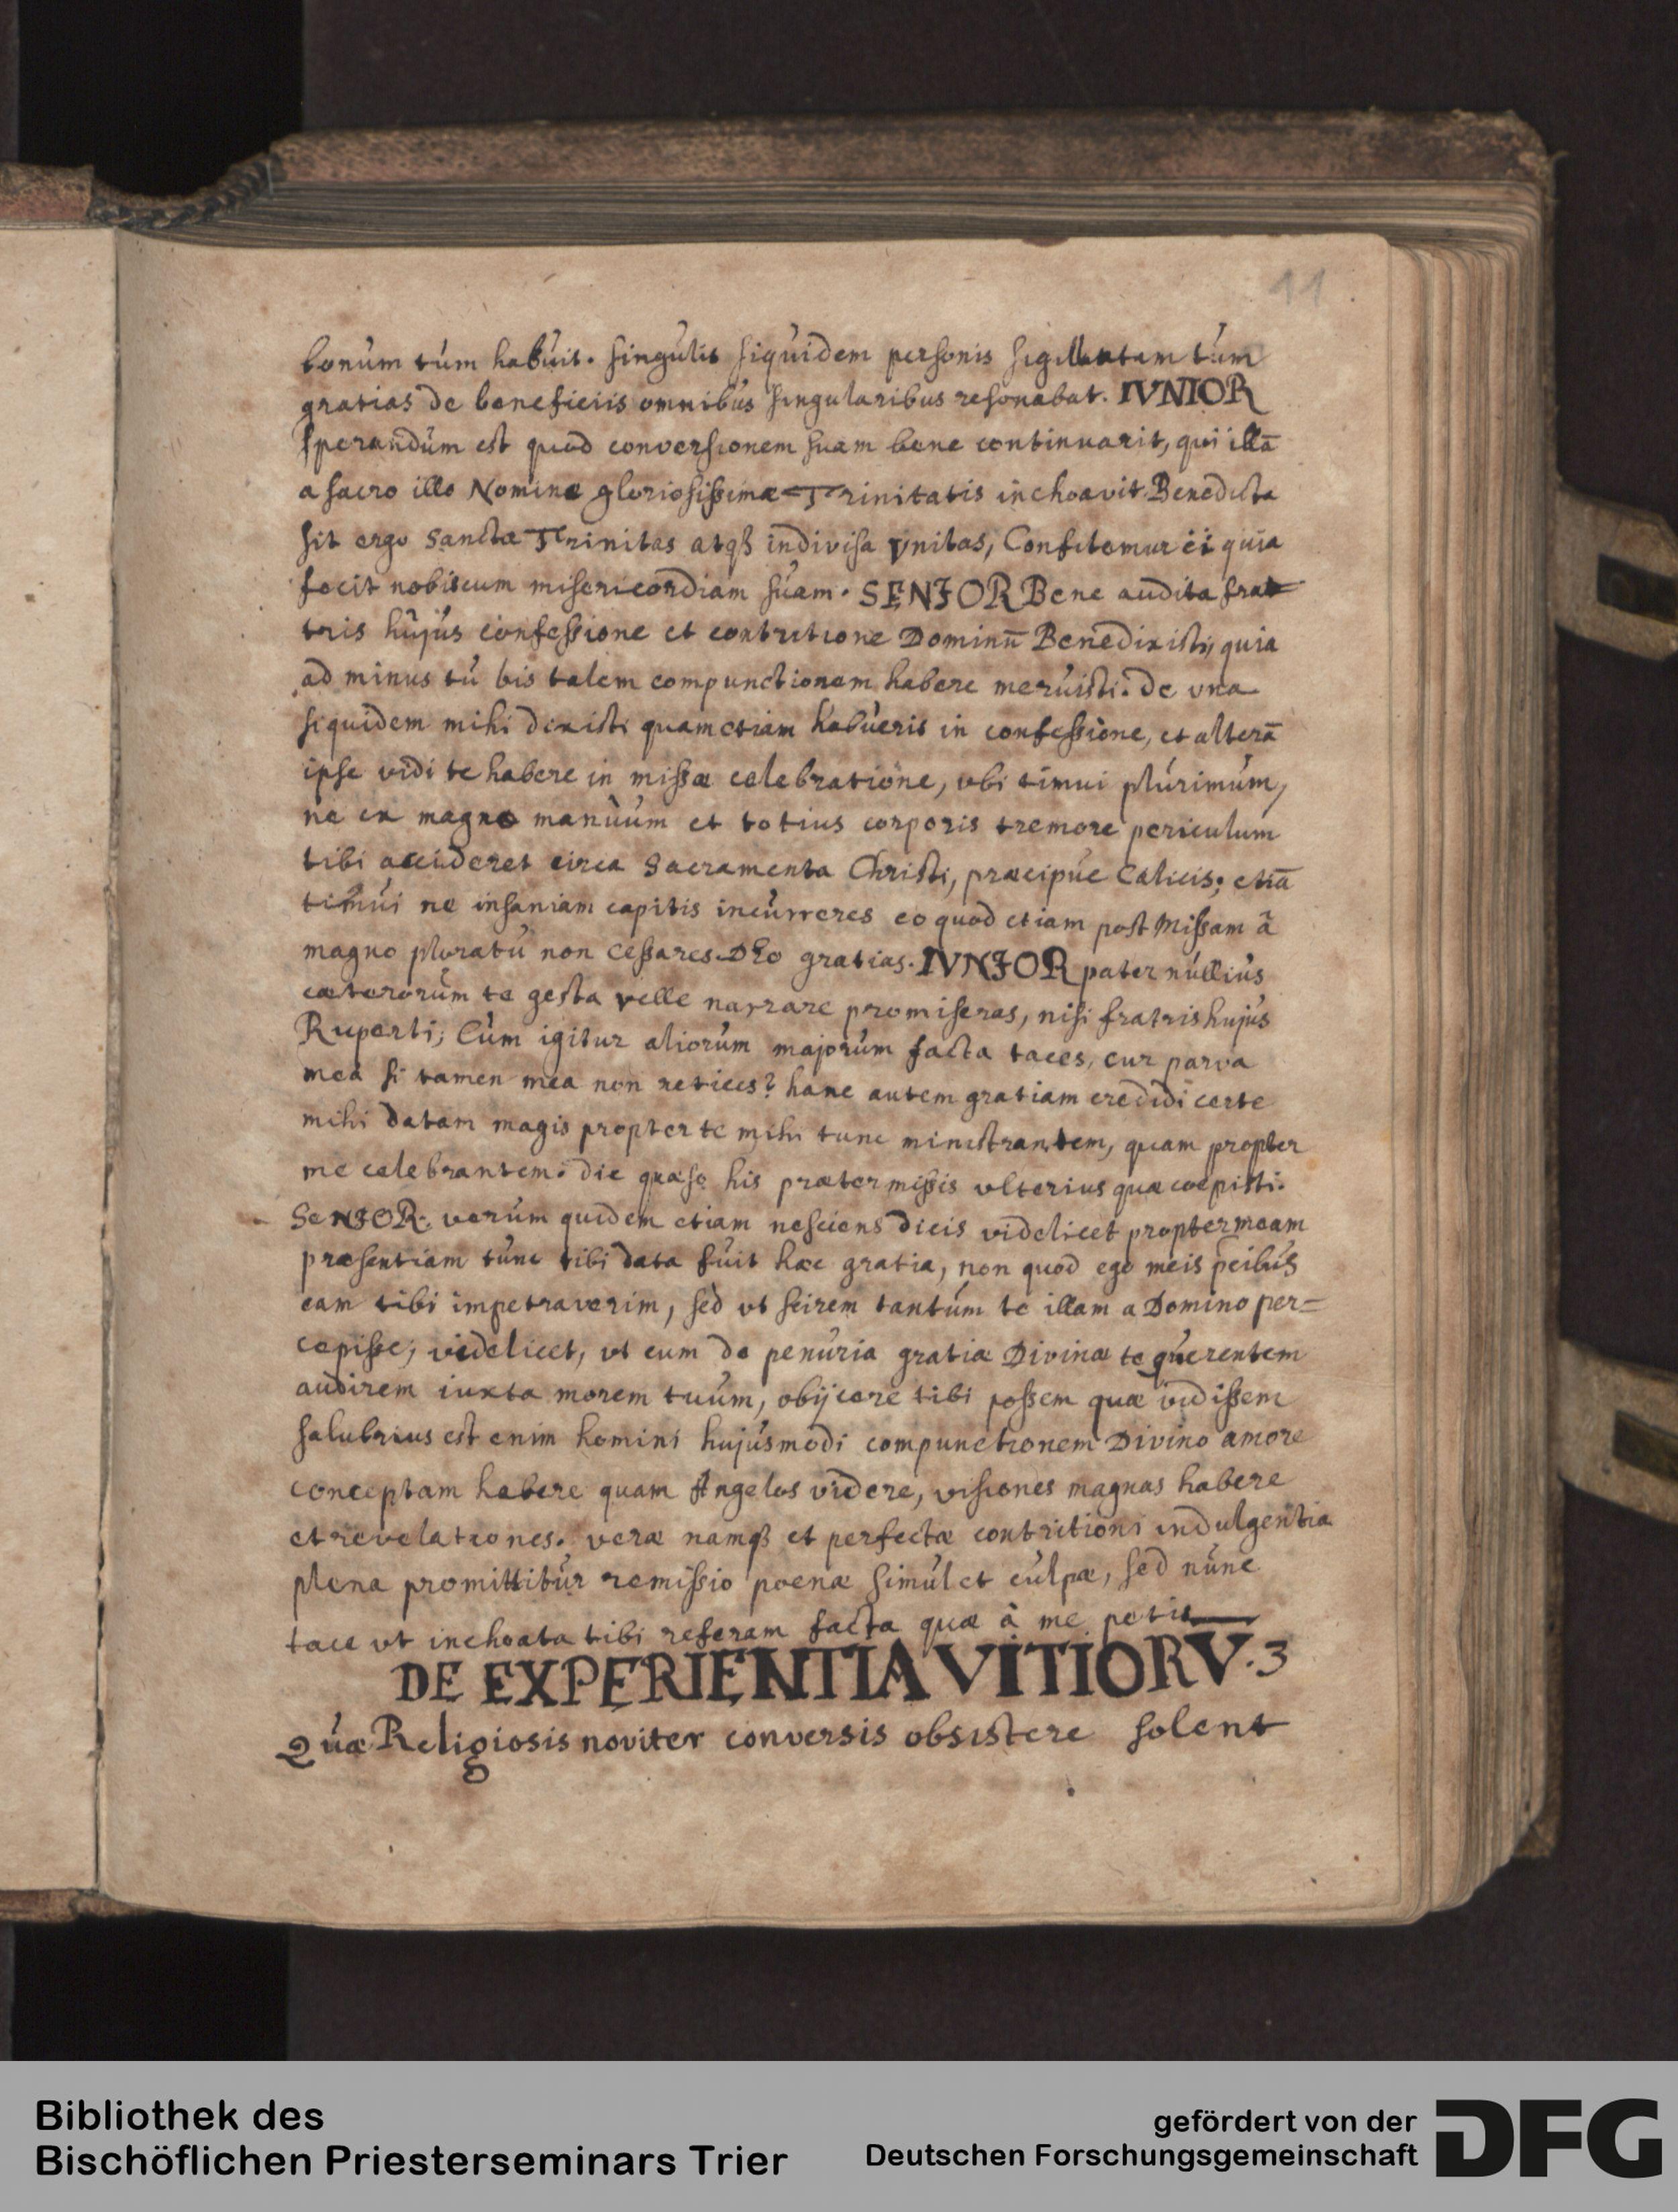 11
bonum tum habuit. singulis siquidem personis sigillatam tum
gratias de beneficiis omnibus singularibus resonabat. IVNIOR
sperandum est quod conversionem suam bene continuarit, qui illā
a sacro illo Nomine gloriosissimæ Trinitatis inchoavit. Benedicta
sit ergo Sancta Trinitas atqȝ indivisa Vnitas, Confitemur ei quia
fecit nobiscum misericordiam suam. SENIOR Bene audita fra
tris hujus confessione et contritione Dominū Benedixisti, quia
ad minus tu bis talem compunctionem habere meruisti. De vna
siquidem mihi dixisti quam etiam habueris in confessione, et alterā
ipse vidi te habere in missæ celebratione, vbi timui plurimum,
ne ex magno manuum et totius corporis tremore periculum
tibi accideret circa Sacramenta Christi, præcipue Calicis; etiā
timui ne insaniam capitis incurreres eo quod etiam post Missam ā
magno ploratu non cessares. Deo gratias. IVNIOR pater nullius
cæterorum te gesta velle narrare promiseras, nisi fratris hujus
Ruperti; Cum igitur aliorum majorum facta taces, cur parva
mea si tamen mea non retices? hanc autem gratiam credidi certe
mihi datam magis propter te mihi tunc ministrantem, quam propter
me celebrantem. dic quæso his prætermissis vlterius quæ coepisti.
SENIOR. verum quidem etiam nesciens dicis videlicet propter meam
præsentiam tunc tibi data fuit hæc gratia, non quod ego meis p̄cibus
eam tibi impetraverim, sed vt scirem tantum te illam a Domino per=
cepisse; videlicet, vt cum de penuria gratiæ Divinæ te querentem
audirem iuxta morem tuum, obijcere tibi possem quæ vidissem
salubrius est enim homini hujusmodi compunctionem Divino amore
conceptam habere quam Angelos videre, visiones magnas habere
et revelationes. veræ namqȝ et perfectæ contritioni indulgentia
plena promittitur remissio poenæ simul et culpæ, sed nunc
tace vt inchoata tibi referam facta quæ à me petis
DE EXPERIENTIA VITIORV̄. 3
Quæ Religiosis noviter conversis obsistere solent
Bibliothek des
Bischöflichen Priesterseminars Trier
gefördert von der
Deutschen Forschungsgemeinschaft
DFG